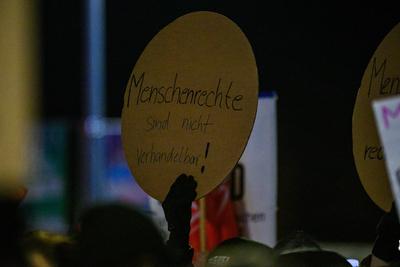 Menschenrechte
sind nicht
verhandelbar!
Men
rec
M